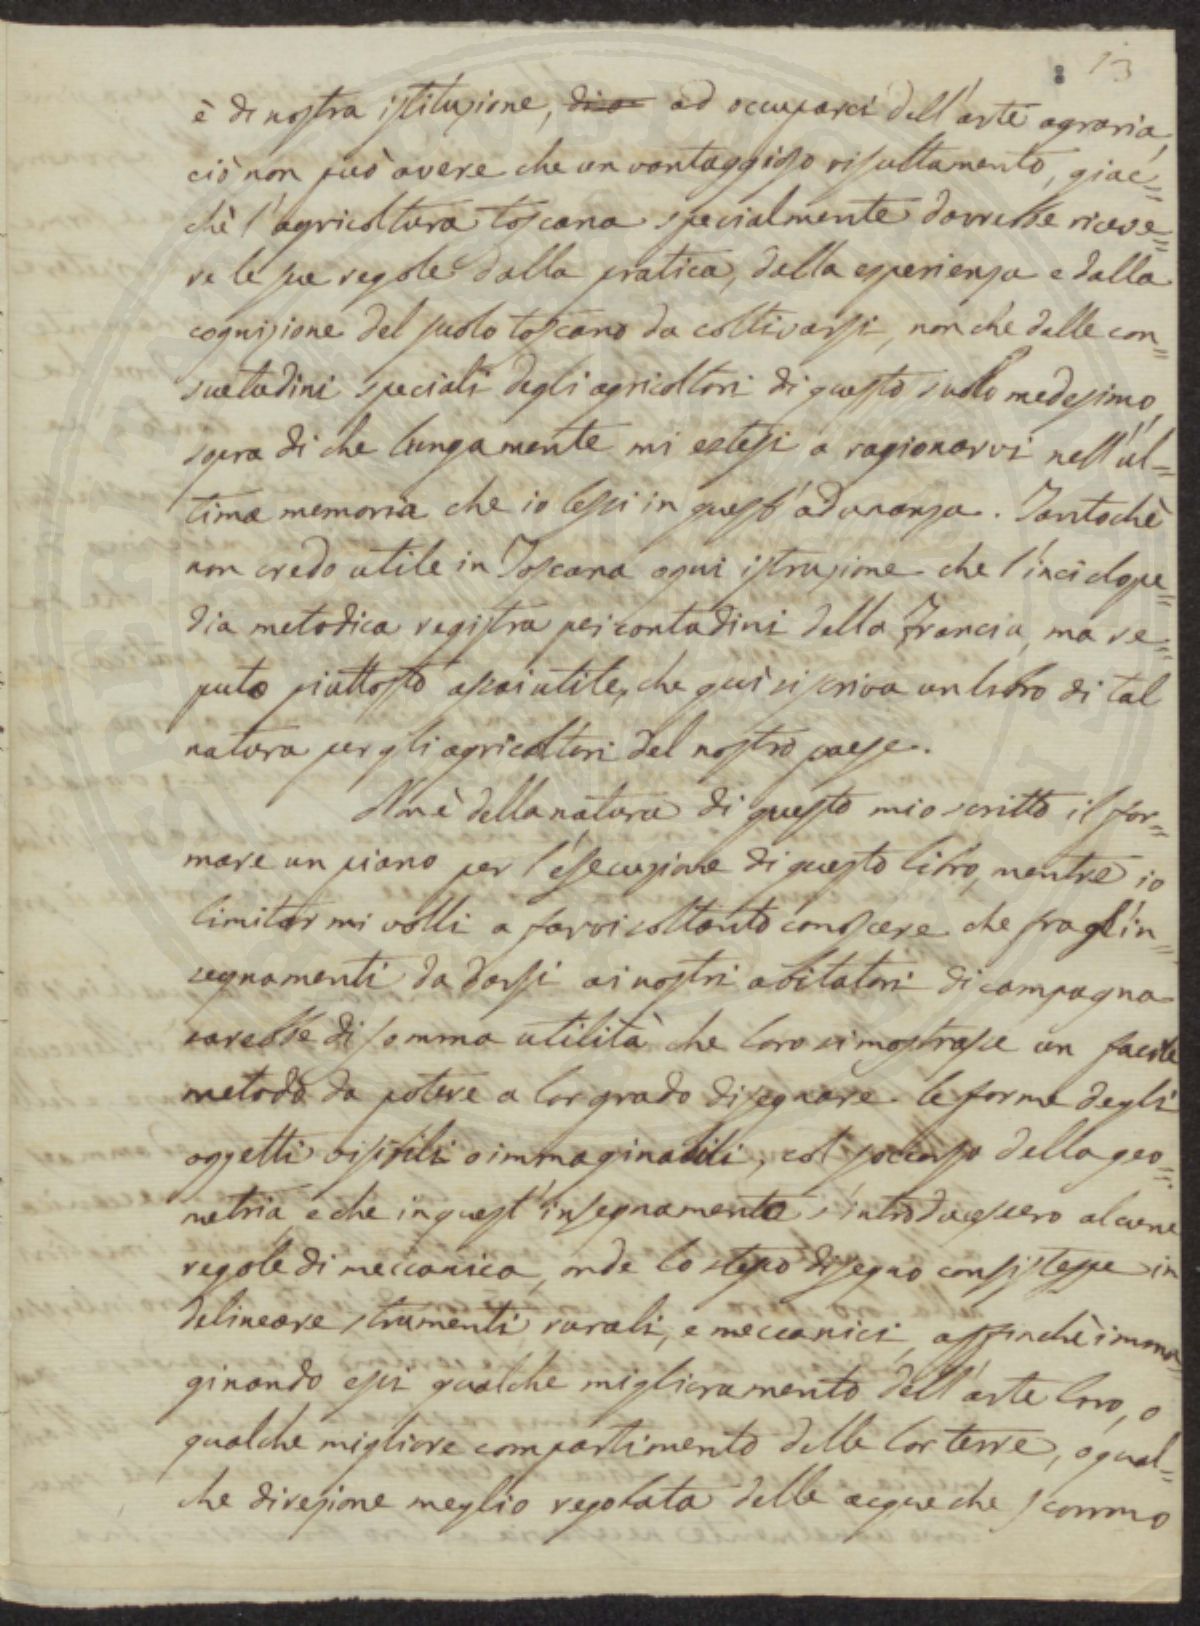 13
è di nostra istituzione, di a ad occuparci dell'arte agraria,
ciò non può avere che un vantaggioso risultamento, giac=
chè l'agricoltura toscana specialmente dovrebbe riceve=
re le sue regole dalla pratica, dalla esperienza e dalla
cognizione del suolo toscano da coltivarsi, non che dalle con=
suetudini speciali degli agricoltori di questo suolo medesimo,
sopra di che lungamente mi estesi a ragionarvi nell'ul=
tima memoria che io lessi in quest'adunanza. Tantochè
non credo utile in Toscana ogni istruzione che l'inciclope=
dia metodica registra pei contadini della Francia, ma re=
puto piuttosto assai utile, che quì si scriva un libro di tal
natura per gli agricoltori del nostro paese.
Nè è della natura di questo mio scritto il for=
mare un piano per l'esecuzione di questo libro, mentre io
limitar mi volli a farvi soltanto conoscere che fragl'in=
segnamenti da darsi ai nostri abitatori di campagna
sarebbe di somma utilità che loro si mostrasse un facile
metodo da potere a lor grado disegnare le forme degli
oggetti visibili o immaginabili, col soccorso della geo=
metria, e che in quest'insegnamento s'introducessero alcune
regole di meccanica, onde lo stesso disegno consistesse in
delineare strumenti rurali, e meccanici, affinchè imma=
ginando essi qualche miglioramento dell'arte loro, o
qualche migliore compartimento delle lor terre, o qual=
che direzione meglio regolata delle acque che scorrono